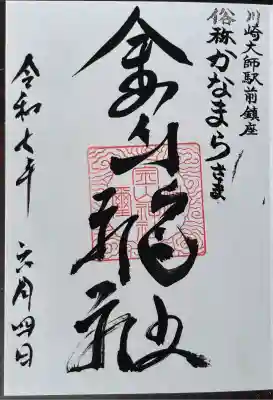 川崎大師駅前鎮座
俗称かなまらさま
金山神社
令和七年 六月四日